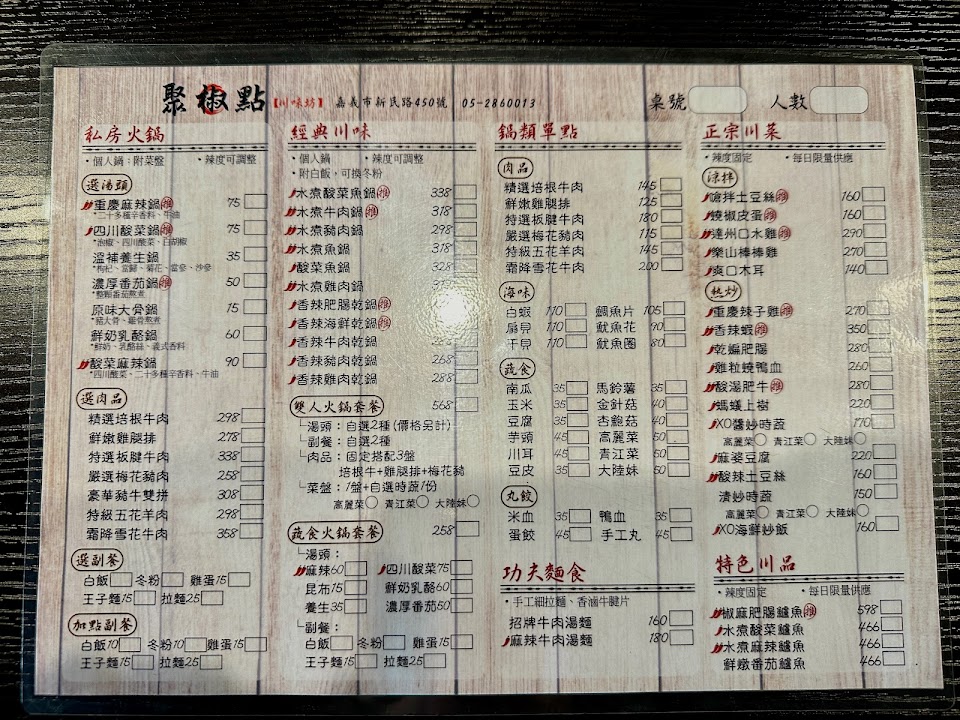 聚椒點【川味坊】 嘉義市新民路450號 05-2860013 桌號 人數
私房火鍋
・個人鍋：附菜盤 ・辣度可調整
選湯頭
重慶麻辣鍋 推 75
*二十多種辛香料、牛油
四川酸菜鍋 推 75
*泡椒、四川酸菜、白胡椒
溫補養生鍋 35
*枸杞、當歸、菊花、當參、沙參
濃厚番茄鍋 推 50
*整顆番茄熬煮
原味大骨鍋 15
*豬大骨、雞骨熬煮
鮮奶乳酪鍋 60
*鮮奶、乳酪絲、義式香料
酸菜麻辣鍋 90
*四川酸菜、二十多種辛香料、牛油
選肉品
精選培根牛肉 298
鮮嫩雞腿排 278
特選板腱牛肉 338
嚴選梅花豬肉 258
豪華豬牛雙拼 308
特級五花羊肉 298
霜降雪花牛肉 358
選副餐
白飯 冬粉 雞蛋15
王子麵15 拉麵25
加點副餐
白飯10 冬粉10 雞蛋15
王子麵15 拉麵25
經典川味
・個人鍋 ・辣度可調整
・附白飯，可換冬粉
水煮酸菜魚鍋 推 338
水煮牛肉鍋 推 318
水煮豬肉鍋 298
水煮魚鍋 318
酸菜魚鍋 328
水煮雞肉鍋
香辣肥腸乾鍋 推
香辣海鮮乾鍋 推
香辣牛肉乾鍋
香辣豬肉乾鍋 268
香辣雞肉乾鍋 288
雙人火鍋套餐 568
湯頭：自選2種(價格另計)
副餐：自選2種
肉品：固定搭配3盤
培根牛+雞腿排+梅花豬
菜盤：1盤+自選時蔬1份
高麗菜 青江菜 大陸妹
蔬食火鍋套餐 258
湯頭：
麻辣60 四川酸菜75
昆布15 鮮奶乳酪60
養生35 濃厚番茄50
副餐：
白飯 冬粉 雞蛋15
王子麵15 拉麵25
鍋類單點
肉品
精選培根牛肉 145
鮮嫩雞腿排 125
特選板腱牛肉 180
嚴選梅花豬肉 115
特級五花羊肉 145
霜降雪花牛肉 200
海味
白蝦 110 鯛魚片 105
扇貝 110 魷魚花 90
干貝 110 魷魚圈 80
蔬食
南瓜 35 馬鈴薯 35
玉米 35 金針菇 40
豆腐 35 杏鮑菇 40
芋頭 45 高麗菜 50
川耳 45 青江菜 50
豆皮 35 大陸妹 50
丸餃
米血 35 鴨血 35
蛋餃 45 手工丸 45
功夫麵食
・手工細拉麵、香滷牛腱片
招牌牛肉湯麵 160
麻辣牛肉湯麵 180
正宗川菜
・辣度固定 ・每日限量供應
涼拌
嗆拌土豆絲 推 160
燒椒皮蛋 推 160
達州口水雞 推 290
樂山棒棒雞 270
爽口木耳 140
熱炒
重慶辣子雞 推 270
香辣蝦 推 350
乾煸肥腸 280
雞粒燒鴨血 260
酸湯肥牛 推 280
螞蟻上樹 220
XO醬炒時蔬 170
高麗菜 青江菜 大陸妹
麻婆豆腐 220
酸辣土豆絲 160
清炒時蔬 150
高麗菜 青江菜 大陸妹
XO海鮮炒飯 160
特色川品
・辣度固定 ・每日限量供應
椒麻肥腸鱸魚 推 598
水煮酸菜鱸魚 466
水煮麻辣鱸魚 466
鮮燉番茄鱸魚 466